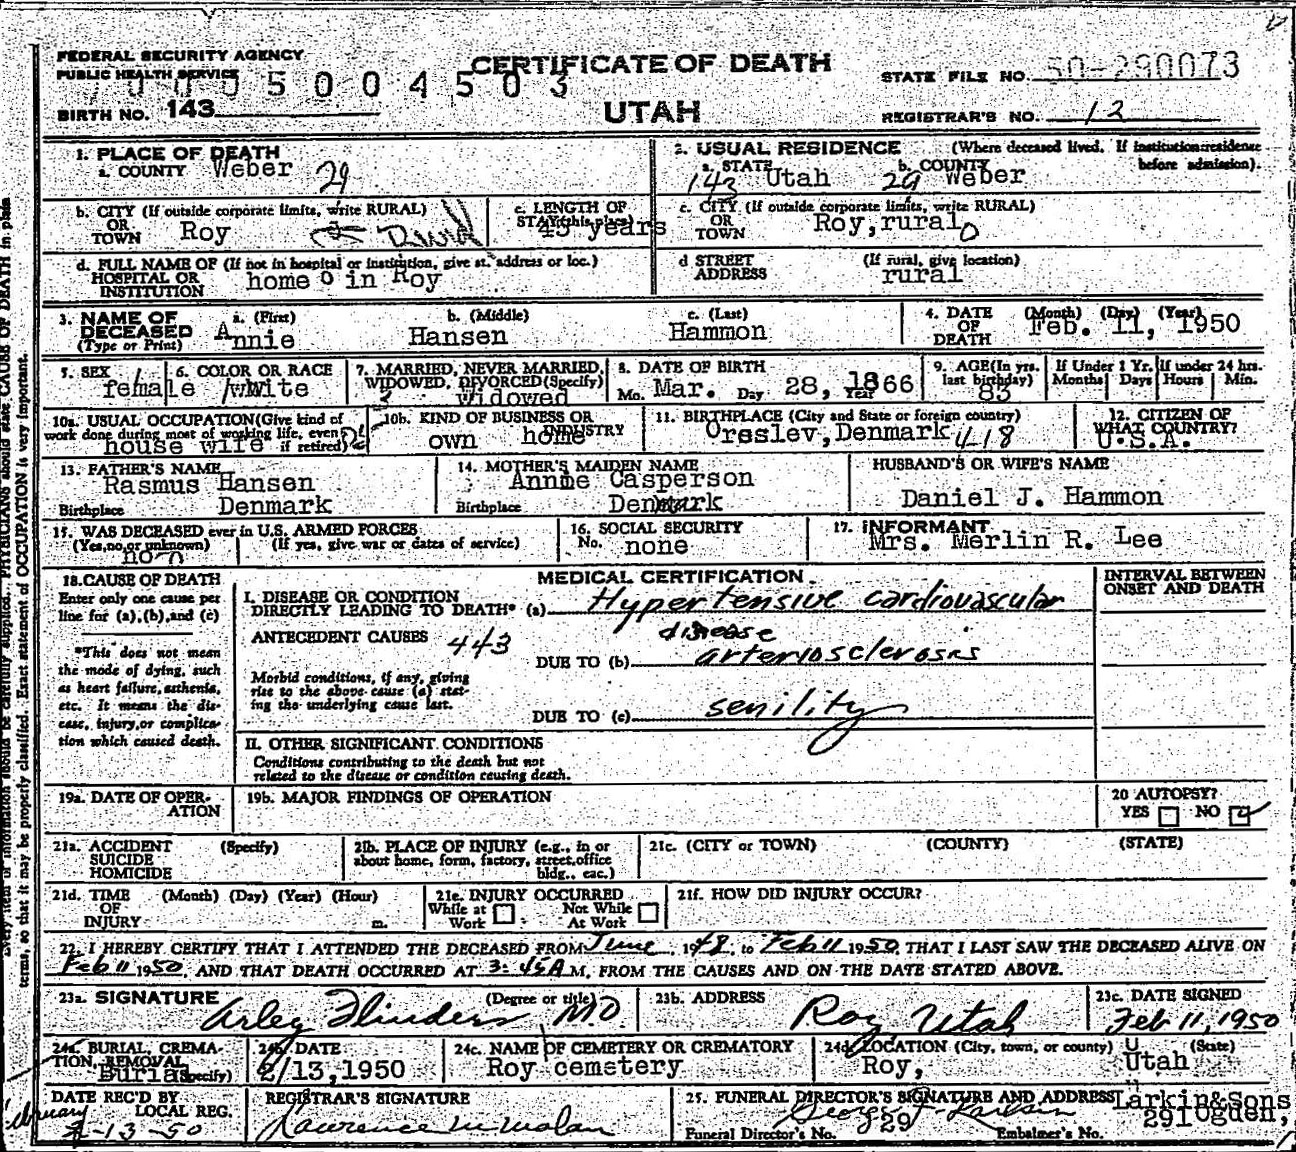 FEDERAL SECURITY AGENCY
PUBLIC HEALTH SERVICE
0005004503
BIRTH NO. 143
CERTIFICATE OF DEATH
UTAH
STATE FILE NO. 50-290073
REGISTRAR'S NO. 12
1. PLACE OF DEATH
a. COUNTY Weber 29
2. USUAL RESIDENCE (Where deceased lived. If institution:residence before admission).
a. STATE 143 Utah b. COUNTY 29 Weber
b. CITY (If outside corporate limits, write RURAL)
OR
TOWN Roy
c. LENGTH OF
STAY (this place)
45 years
c. CITY (If outside corporate limits, write RURAL)
OR
TOWN Roy, rural 0
d. FULL NAME OF (If not in hospital or institution, give st. address or loc.)
HOSPITAL OR
INSTITUTION home 0 in Roy
d STREET
ADDRESS
(If rural, give location)
rural
3. NAME OF
DECEASED
(Type or Print)
a. (First)
Annie
b. (Middle)
Hansen
c. (Last)
Hammon
4. DATE
OF
DEATH
(Month) (Day) (Year)
Feb. 11, 1950
5. SEX
female
6. COLOR OR RACE
white
7. MARRIED, NEVER MARRIED,
WIDOWED, DIVORCED(Specify)
widowed
8. DATE OF BIRTH
Mo. Mar. Day 28, Year 1866
9. AGE(In yrs.
last birthday)
83
If Under 1 Yr.
Months Days
If under 24 hrs.
Hours Min.
10a. USUAL OCCUPATION(Give kind of
work done during most of working life, even
if retired)
house wife
10b. KIND OF BUSINESS OR
INDUSTRY
own home
11. BIRTHPLACE (City and State or foreign country)
Oreslev, Denmark 418
12. CITIZEN OF
WHAT COUNTRY?
U.S.A.
13. FATHER'S NAME
Rasmus Hansen
Birthplace Denmark
14. MOTHER'S MAIDEN NAME
Annie Casperson
Birthplace Denmark
HUSBAND'S OR WIFE'S NAME
Daniel J. Hammon
15. WAS DECEASED ever in U.S. ARMED FORCES
(Yes,no,or unknown) (If yes, give war or dates of service)
no
16. SOCIAL SECURITY
No. none
17. INFORMANT
Mrs. Merlin R. Lee
18. CAUSE OF DEATH
Enter only one cause per
line for (a),(b),and (c)
*This does not mean
the mode of dying, such
as heart failure, asthenia,
etc. It means the dis-
ease, injury,or complica-
tion which caused death.
MEDICAL CERTIFICATION
I. DISEASE OR CONDITION
DIRECTLY LEADING TO DEATH* (a) Hypertensive cardiovascular
disease
ANTECEDENT CAUSES 443
DUE TO (b) arteriosclerosis
Morbid conditions, if any, giving
rise to the above cause (a) stat-
ing the underlying cause last.
DUE TO (c) senility
II. OTHER SIGNIFICANT CONDITIONS
Conditions contributing to the death but not
related to the disease or condition causing death.
INTERVAL BETWEEN
ONSET AND DEATH
19a. DATE OF OPER-
ATION
19b. MAJOR FINDINGS OF OPERATION
20 AUTOPSY?
YES NO
21a. ACCIDENT (Specify)
SUICIDE
HOMICIDE
21b. PLACE OF INJURY (e.g., in or
about home, form, factory, street,office
bldg., eac.)
21c. (CITY or TOWN) (COUNTY) (STATE)
21d. TIME (Month) (Day) (Year) (Hour)
OF
INJURY m.
21e. INJURY OCCURRED
While at Work Not While At Work
21f. HOW DID INJURY OCCUR?
22. I HEREBY CERTIFY THAT I ATTENDED THE DECEASED FROM June, 1948, to Feb 11 1950, THAT I LAST SAW THE DECEASED ALIVE ON
Feb 11 1950, AND THAT DEATH OCCURRED AT 3:45A M, FROM THE CAUSES AND ON THE DATE STATED ABOVE.
23a. SIGNATURE (Degree or title)
Arley Flinders M.D.
23b. ADDRESS
Roy Utah
23c. DATE SIGNED
Feb 11, 1950
24a BURIAL, CREMA-
TION, REMOVAL
(Specify)
Burial
24b. DATE
2/13,1950
24c. NAME OF CEMETERY OR CREMATORY
Roy cemetery
24d. LOCATION (City, town, or county) (State)
Roy, Utah
DATE REC'D BY
LOCAL REG.
February
2-13-50
REGISTRAR'S SIGNATURE
Lawrence M Malan
25. FUNERAL DIRECTOR'S SIGNATURE AND ADDRESS Larkin&Sons
George F Larkin Ogden,
Funeral Director's No. 29 Embalmer's No. 291
Every item of information should be carefully supplied. PHYSICIANS should state CAUSE OF DEATH in plain
terms, so that it may be properly classified. Exact statement of OCCUPATION is very important.